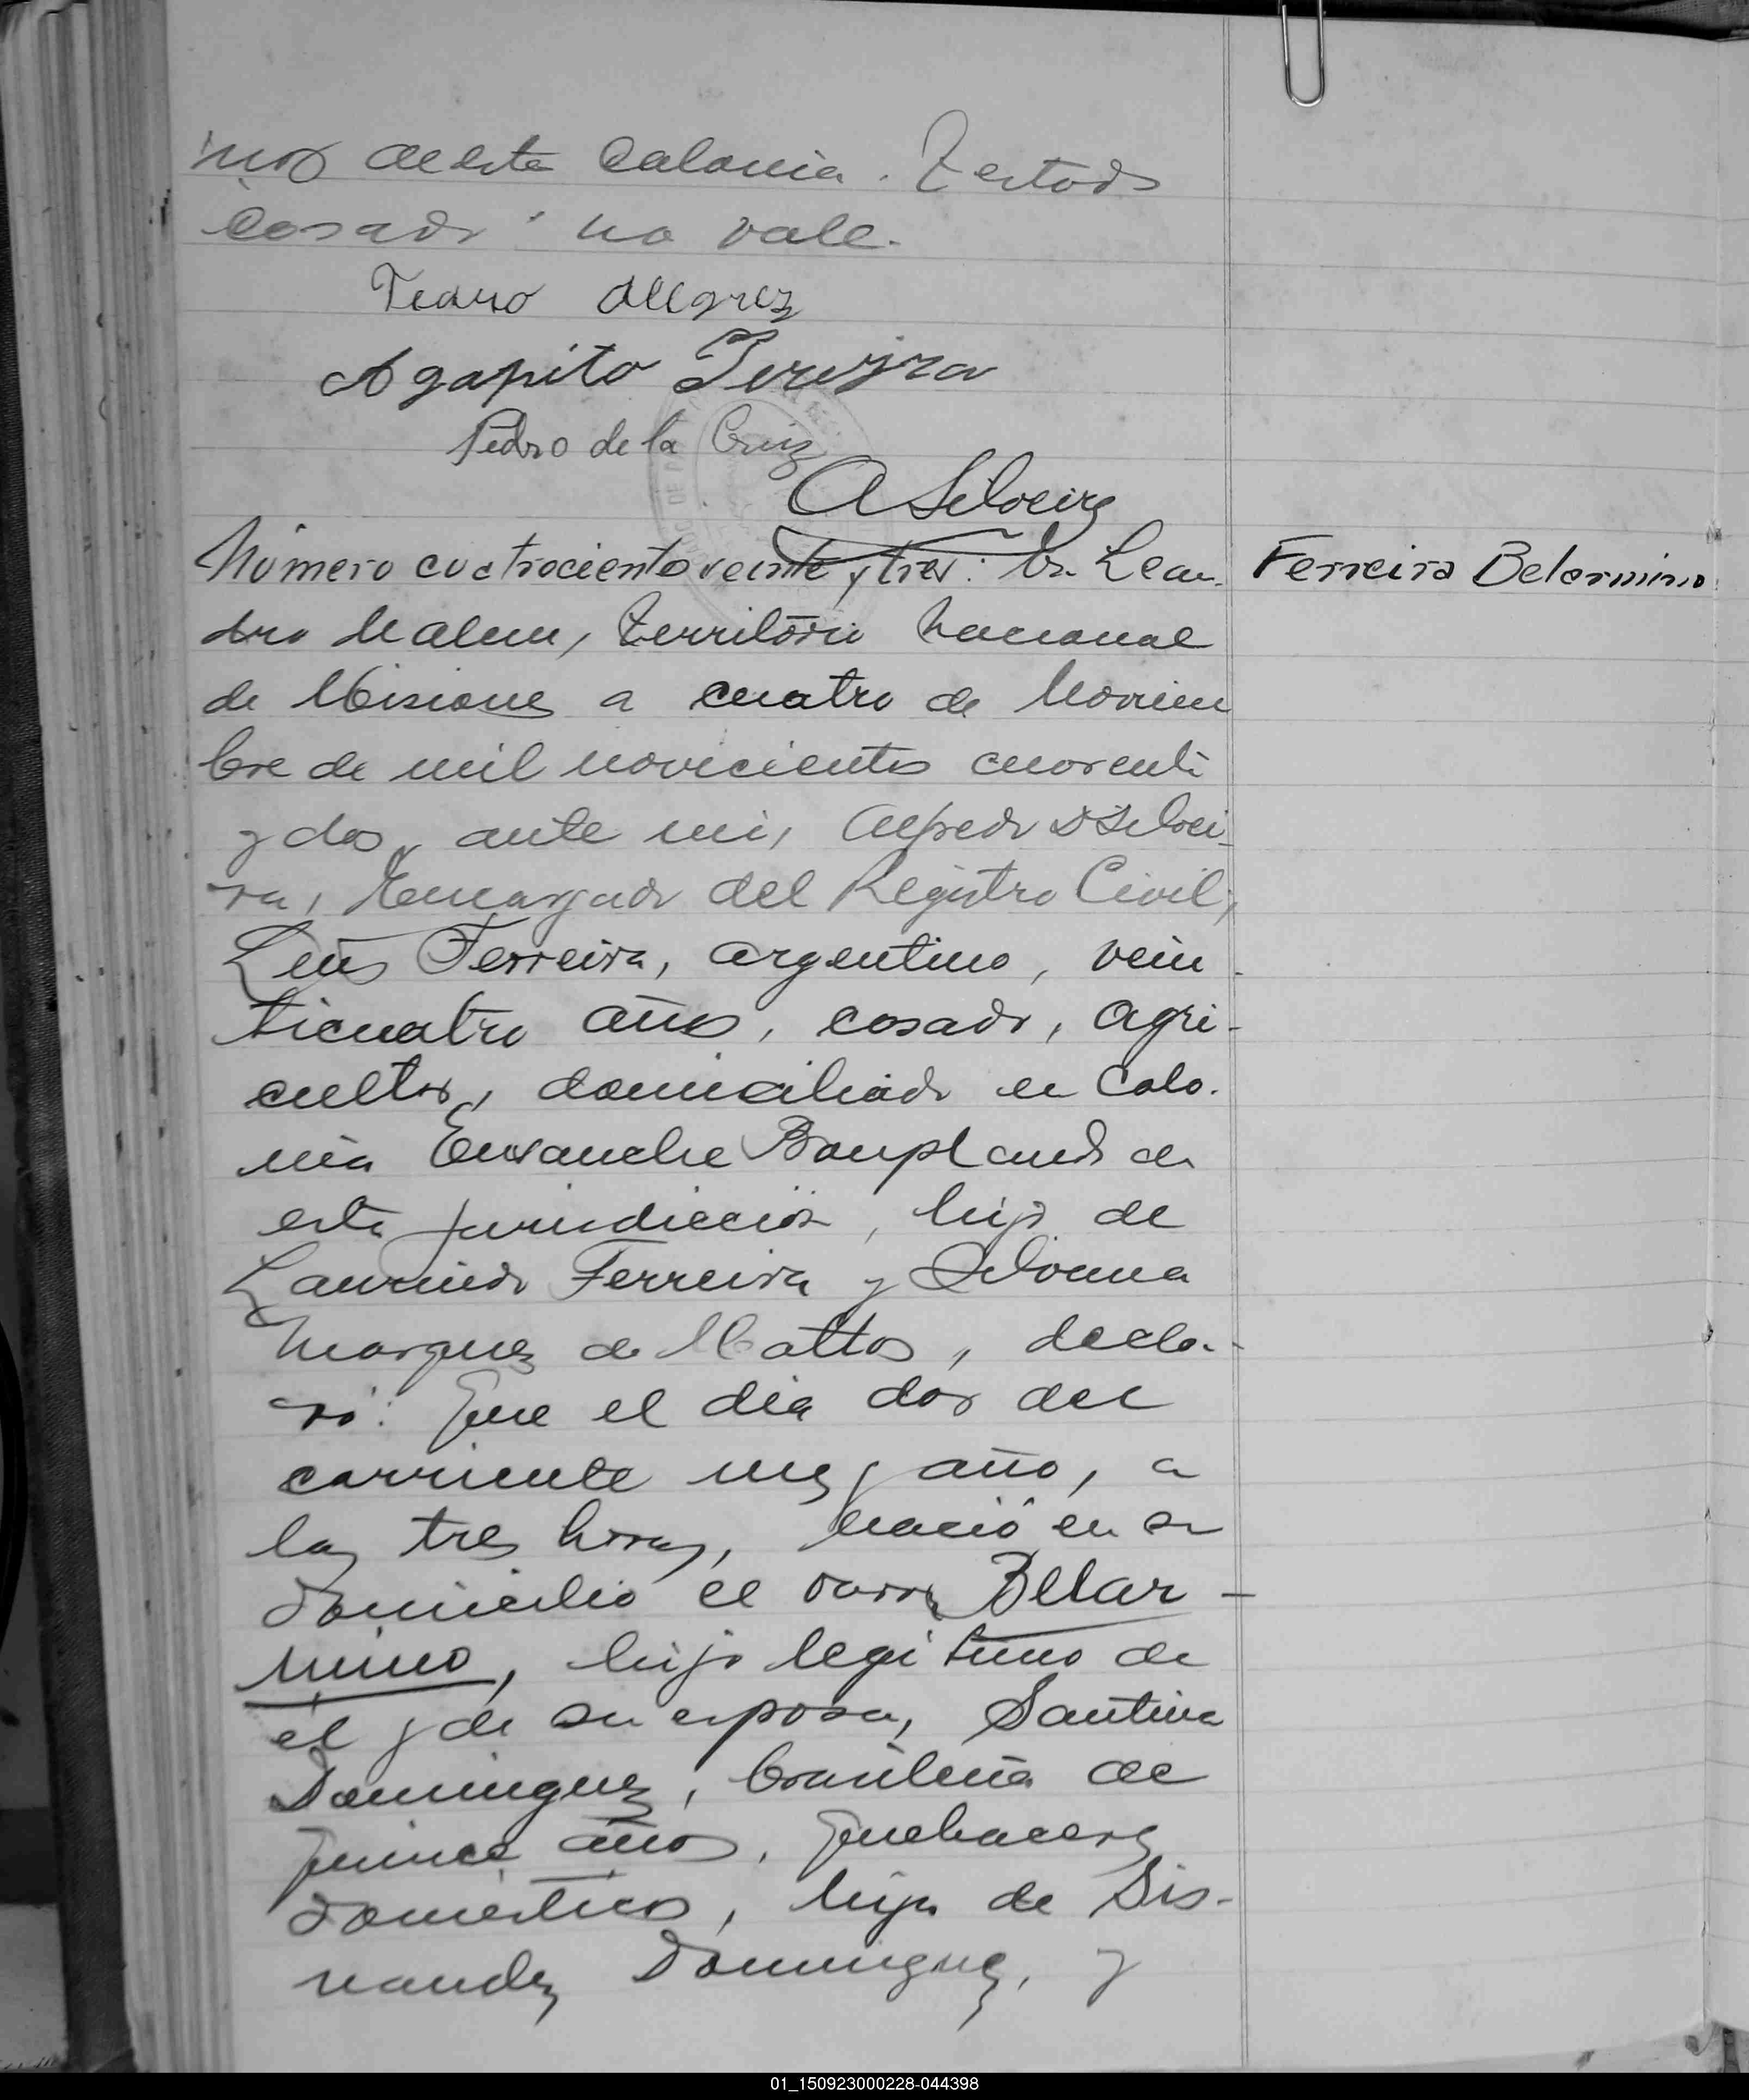 nos de esta Colonia. Testado
"casado" no vale.
Pedro Alegrez
Agapito Pereyra
Pedro de la Cruz
A Silveira
Número cuatrociento veinte y tres: En Lean-
dro N Alem, Territorio Nacional
de Misiones a cuatro de Noviem
bre de mil novecientos cuarenta
y dos, ante mi, Alfredo D Silvei-
ra, Encargado del Registro Civil,
Luis Ferreira, argentino, vein-
ticuatro años, casado, agri-
cultor, domiciliado en Colo-
nia Ensanche Bonpland de
esta jurisdicción, hijo de
Laurindo Ferreira y
Marquez de Mattos, decla-
ró: Que el dia dos del
corriente mes y año, a
las tres horas, nació en su
domicilio el varon Belar-
mino, hijo legitimo de
el y de su esposa, Santina
Dominguez, brasileña de
quince años, quehaceres
domesticos, hija de Sis-
nandez Dominguez, y
Ferreira Belarmino
01_150923000228-044398